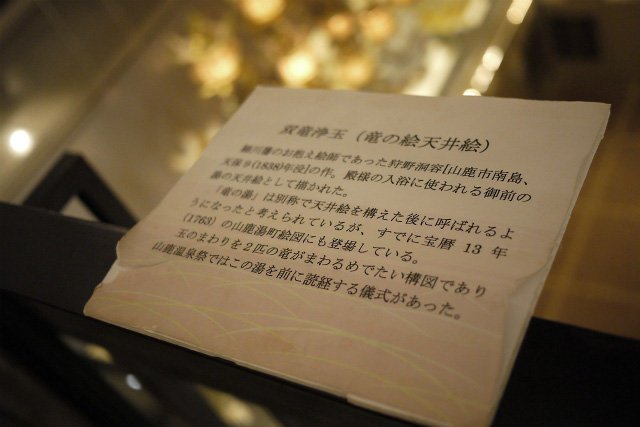 双竜浄玉（竜の絵天井絵）
細川藩のお抱え絵師であった狩野洞容[山鹿市南島、
天保9(1838)年役]の作。殿様の入浴に使われる御前の
湯の天井絵として描かれた。
「竜の湯」は別称で天井絵を構えた後に呼ばれるよ
うになったと考えられているが、すでに宝暦 13 年
（1763）の山鹿湯町絵図にも登場している。
玉のまわりを２匹の竜がまわるめでたい構図であり
山鹿温泉祭ではこの湯を前に読経する儀式があった。